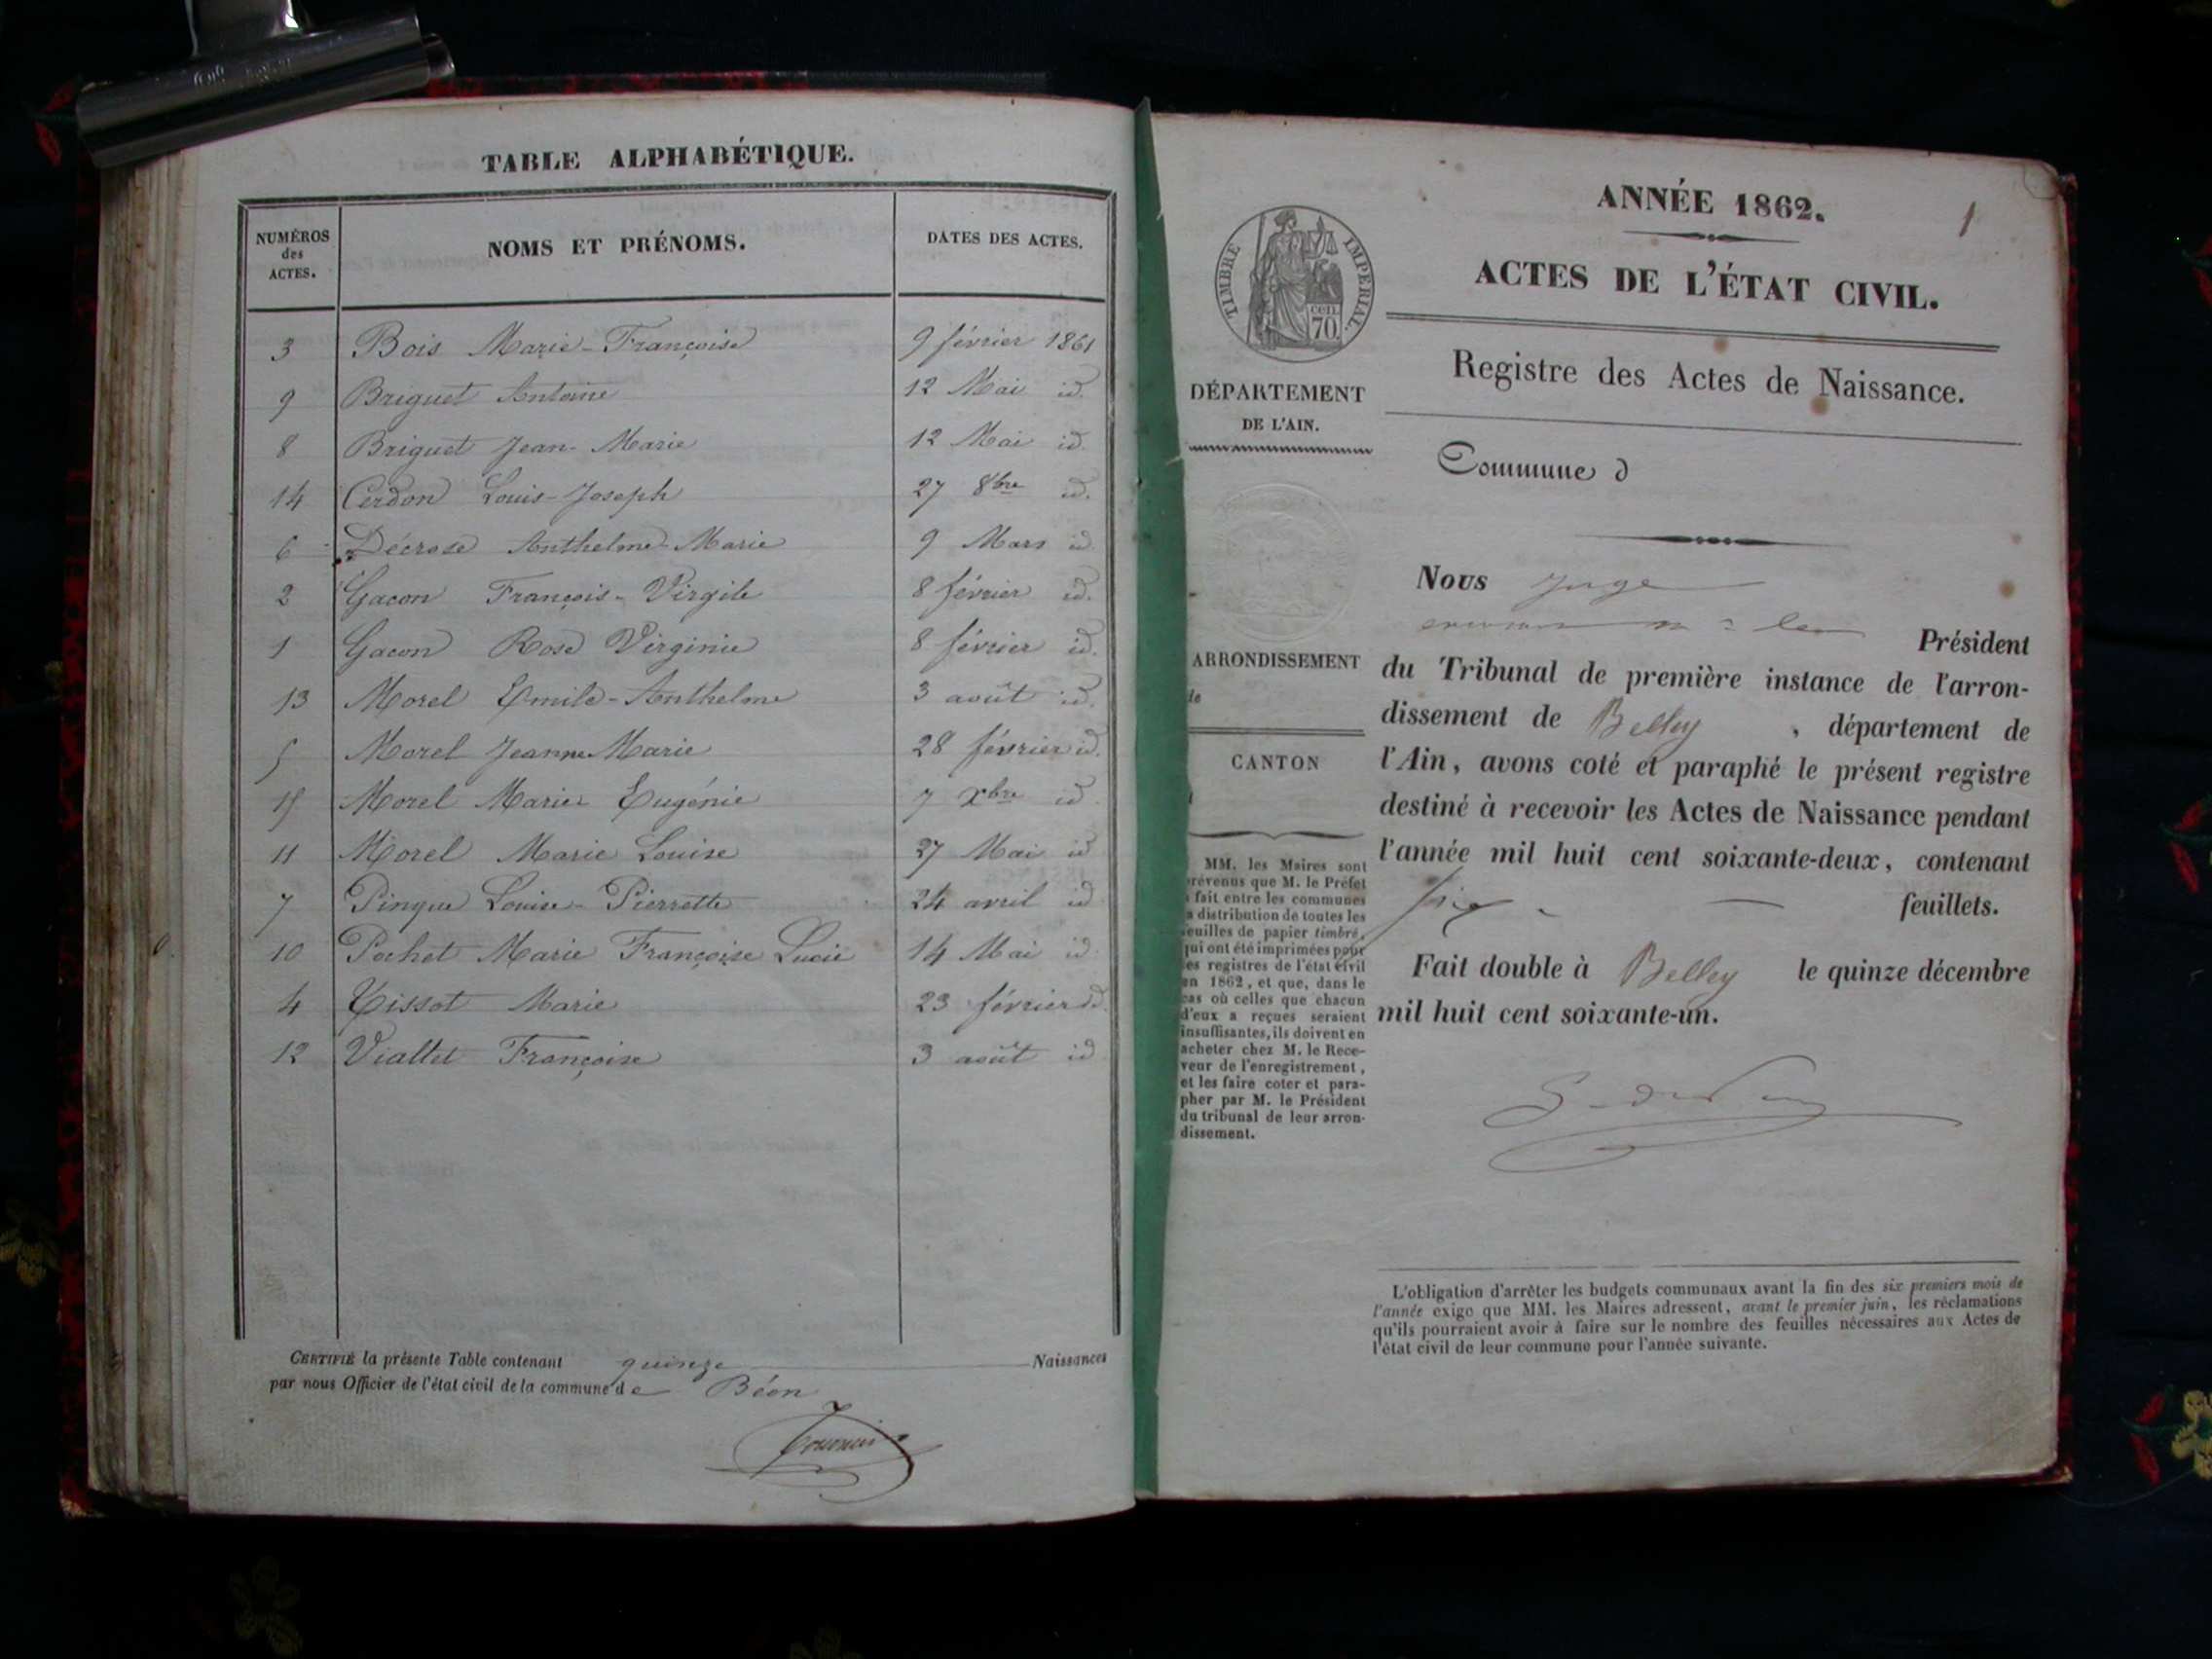 TABLE ALPHABÉTIQUE.
NUMÉROS des ACTES. NOMS ET PRÉNOMS. DATES DES ACTES.
3 Bois Marie-Françoise 9 février 1861
9 Briguet Antoine 12 Mai id.
8 Briguet Jean-Marie 12 Mai id.
14 Cerdon Louis-Joseph 27 8bre id.
6 Décrose Anthelme-Marie 9 Mars id.
2 Gacon François-Virgile 8 février id.
1 Gacon Rose Virginie 8 février id.
13 Morel Emile-Anthelme 3 août id.
5 Morel Jeanne Marie 28 février id.
15 Morel Marie Eugénie 7 Xbre id.
11 Morel Marie Louise 27 Mai id
7 Pingue Louise-Pierrette 24 avril id
10 Pochet Marie Françoise Lucie 14 Mai id
4 Tissot Marie 23 février id.
12 Viallet Françoise 3 août id
CERTIFIÉ la présente Table contenant quinze Naissances
par nous Officier de l'état civil de la commune de Béon
ANNÉE 1862. 1
ACTES DE L'ÉTAT CIVIL.
Registre des Actes de Naissance.
TIMBRE IMPÉRIAL.
CEN. 70.
DÉPARTEMENT
DE L'AIN.
ARRONDISSEMENT
de
CANTON
MM. les Maires sont
prévenus que M. le Préfet
a fait entre les communes
la distribution de toutes les
feuilles de papier timbré,
qui ont été imprimées pour
les registres de l'état civil
en 1862, et que, dans le
cas où celles que chacun
d'eux a reçues seraient
insuffisantes, ils doivent en
acheter chez M. le Rece-
veur de l'enregistrement,
et les faire coter et para-
pher par M. le Président
du tribunal de leur arron-
dissement.
Commune d
Nous Juge
Président
du Tribunal de première instance de l'arron-
dissement de Belley, département de
l'Ain, avons coté et paraphé le présent registre
destiné à recevoir les Actes de Naissance pendant
l'année mil huit cent soixante-deux, contenant
six feuillets.
Fait double à Belley le quinze décembre
mil huit cent soixante-un.
L'obligation d'arrêter les budgets communaux avant la fin des six premiers mois de
l'année exige que MM. les Maires adressent, avant le premier juin, les réclamations
qu'ils pourraient avoir à faire sur le nombre des feuilles nécessaires aux Actes de
l'état civil de leur commune pour l'année suivante.